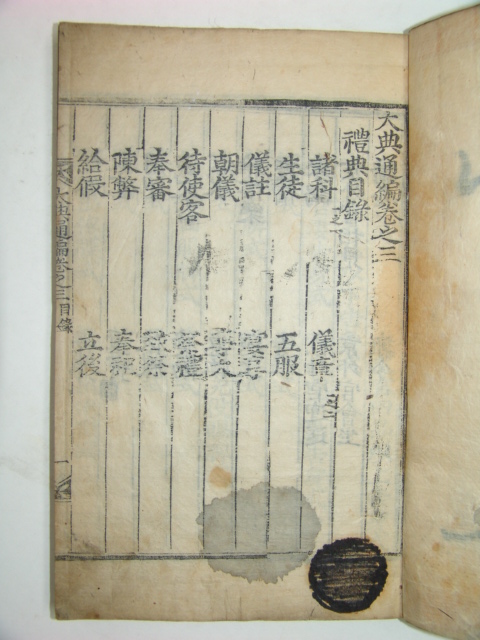 大典通編卷之三
禮典目錄
諸科 儀章
生徒 五服
儀註 宴享
朝儀 事大
待使客 祭禮
奉審 致祭
陳弊 奉祀
給假 立後
大典通編卷之三 目錄 一